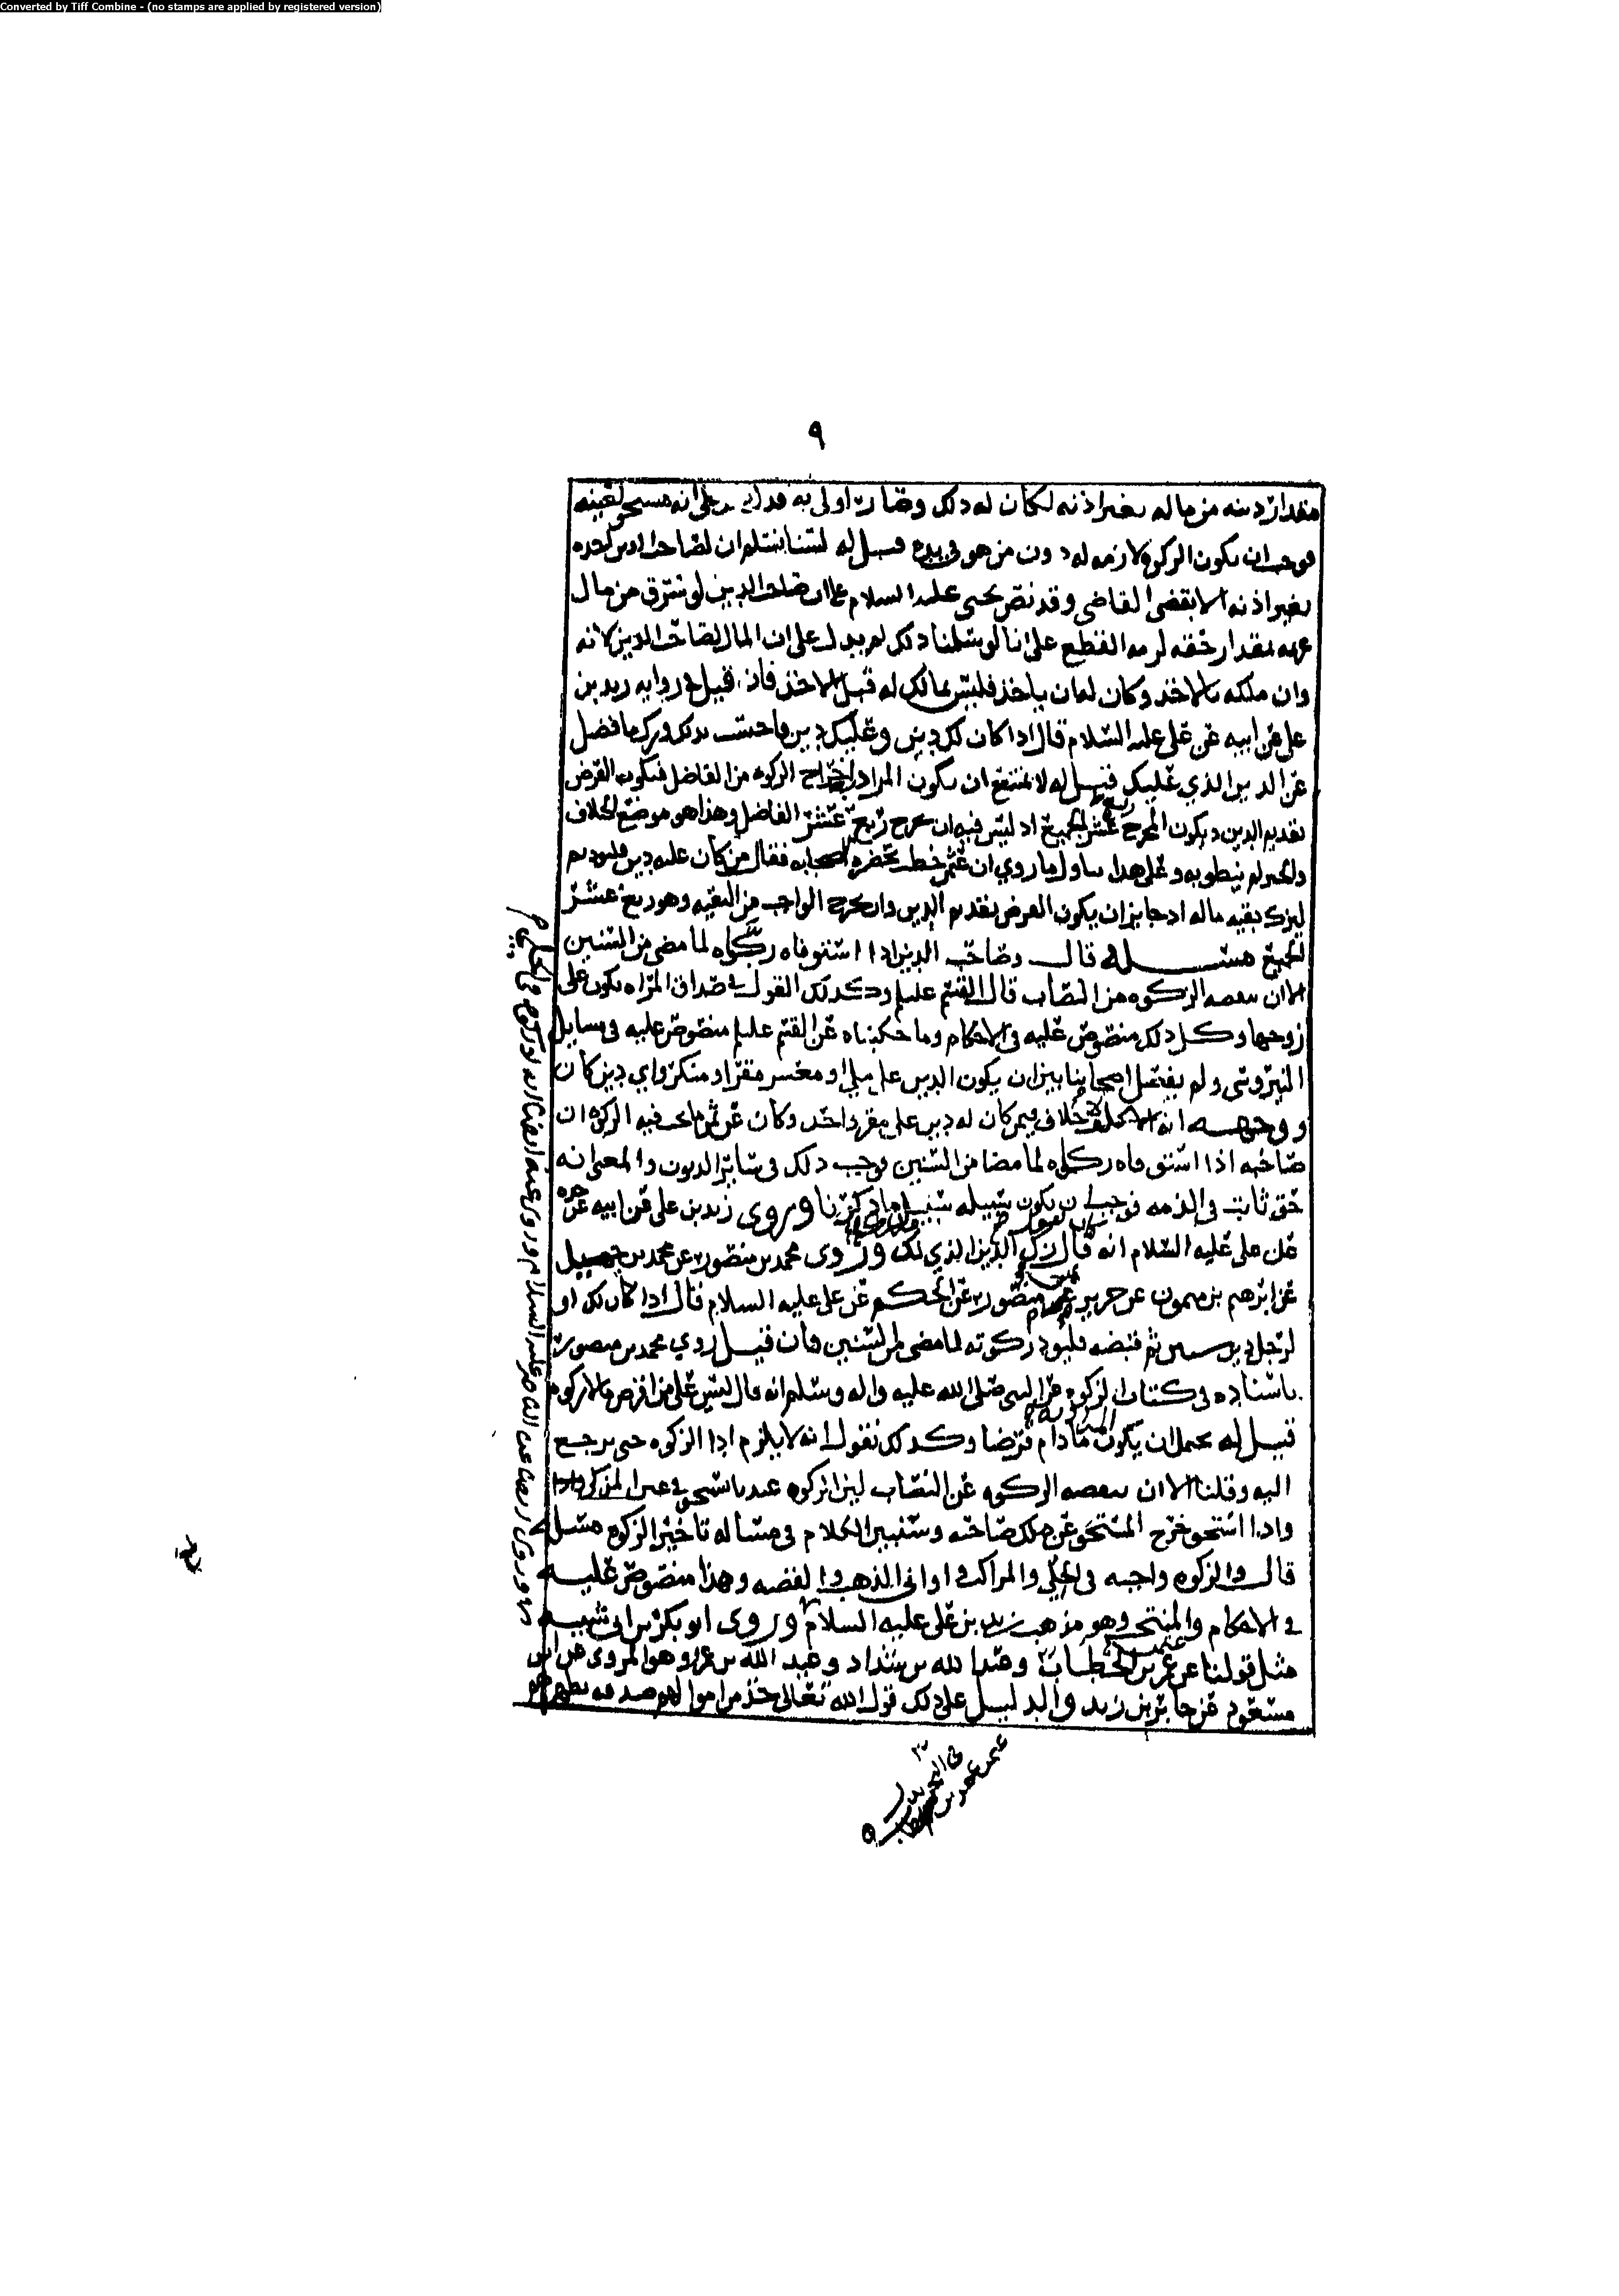 Converted by Tiff Combine - (no stamps are applied by registered version)
٩
مقدار دينه من ماله بغير اذنه لكان له ذلك وصار اولى به فدل على انه مستحق لعينه
فوجب ان يكون الزكوة لازمه له دون من هو في يده قيل له لسنا نسلم ان لصاحب الدين اخذه
بغير اذنه الا بقضى القاضي وقد نص يحيى عليه السلام على ان صاحب الدين لو سرق من مال
غريمه مقدار حقه لزمه القطع على انا لو سلمنا ذلك لم يدل على ان المال لصاحب الدين لانه
وان ملكه بالاخذ وكان له ان ياخذ فليس بمالك له قبل الاخذ فان قيل في روايه زيد بن
علي عن ابيه عن علي عليه السلام قال اذا كان لك دين وعليك دين فاحتسب بذلك وزك ما فضل
عن الدين الذي عليك قيل له لا يمتنع ان يكون المراد اخراج الزكوه من الفاضل فيكون الغرض
تقديم الدين ويكون المخرج ربع عشر الجميع اذ ليس فيه ان يخرج ربع عشر الفاضل وهذا هو موضع الخلاف
والخبر لم ينطق به وعلى هذا يتاول ما روي ان عثمن خطب بحضره الصحابه فقال من كان عليه دين فليوده ثم
ليزك بقيه ماله اذ جايز ان يكون الغرض تقديم الدين وان يخرج الواجب من البقيه وهو ربع عشر
الجميع مسئله قال وصاحب الدين اذا استوفاه زكاه لما مضى من السنين
الا ان ينقصه الزكوه من النصاب قال القسم عليلم وكذلك القول في صداق المراه يكون على
زوجها وكل ذلك منصوص عليه في الاحكام وما حكيناه عن القسم عليلم منصوص عليه في مسايل
النيروسي ولم يفصل اصحابنا بين ان يكون الدين على ملي او معسر مقر او منكر واي دين كان
ووجهه انه لا خلاف فيمن كان له دين على مقر واحد وكان عن ثمن ما يجب فيه الزكوة ان
صاحبه اذا استوفاه زكاه لما مضا من السنين فوجب ذلك في سائر الديون والمعنى انه
حق ثابت في الذمه فوجب ان يكون سبيله سبيل ما ذكرنا وروى زيد بن علي عن ابيه عن جده
عن علي عليه السلام انه قال زك الدين الذي لك وروى محمد بن منصور عن محمد بن جميل
عن ابرهيم بن ميمون عن جرير عن منصور عن الحكم عن علي عليه السلام قال اذا كان لك او
لرجل دين سنين ثم قبضه فليود زكوته لما مضى من السنين فان قيل روي محمد بن منصور
باسناده في كتاب الزكوه عن النبي صلى الله عليه واله وسلم انه قال ليس على من اقرض مالا زكوه
قيل له يحتمل ان يكون المراد به ما دام قرضا وكذلك نقول انه لا يلزم اداء الزكوه حتى يرجع
اليه وقلنا الا ان ينقصه الزكوه عن النصاب لين الزكوه عندنا تستحق في عين المزكى واذا
واذا استحق خرج المستحق عن ملك صاحبه وسنبين الكلام في مسأله تاخير الزكوه مسئله
قال والزكوه واجبه في الحلي والمراكب واواني الذهب والفضه وهذا منصوص عليه
في الاحكام والمنتخب وهو مذهب زيد بن علي عليه السلام وروى ابو بكر بن ابي شيبه
مثل قولنا عن عمر بن الخطاب وعبدالله بن شداد وعبد الله بن عمرو وهو المروي عن ابن
مسعود عن جابر بن زيد والدليل على ذلك قول الله تعالى خذ من اموالهم صدقه تطهرهم